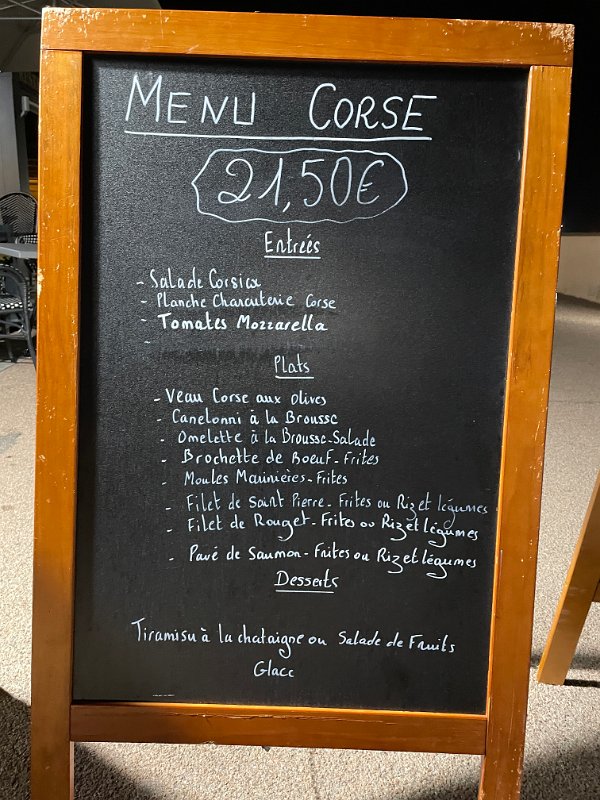 MENU CORSE
21,50€
Entreés
- Salade Corsica
- Planche Charcuterie Corse
- Tomates Mozzarella
-
Plats
- Veau Corse aux olives
- Canelonni à la Brousse
- Omelette à la Brousse-Salade
- Brochette de Boeuf - Frites
- Moules Marinières - Frites
- Filet de Saint Pierre - Frites ou Riz et légumes
- Filet de Rouget - Frites ou Riz et légumes
- Pavé de Saumon - Frites ou Riz et légumes
Desserts
Tiramisu à la chataigne ou Salade de Fruits
Glace